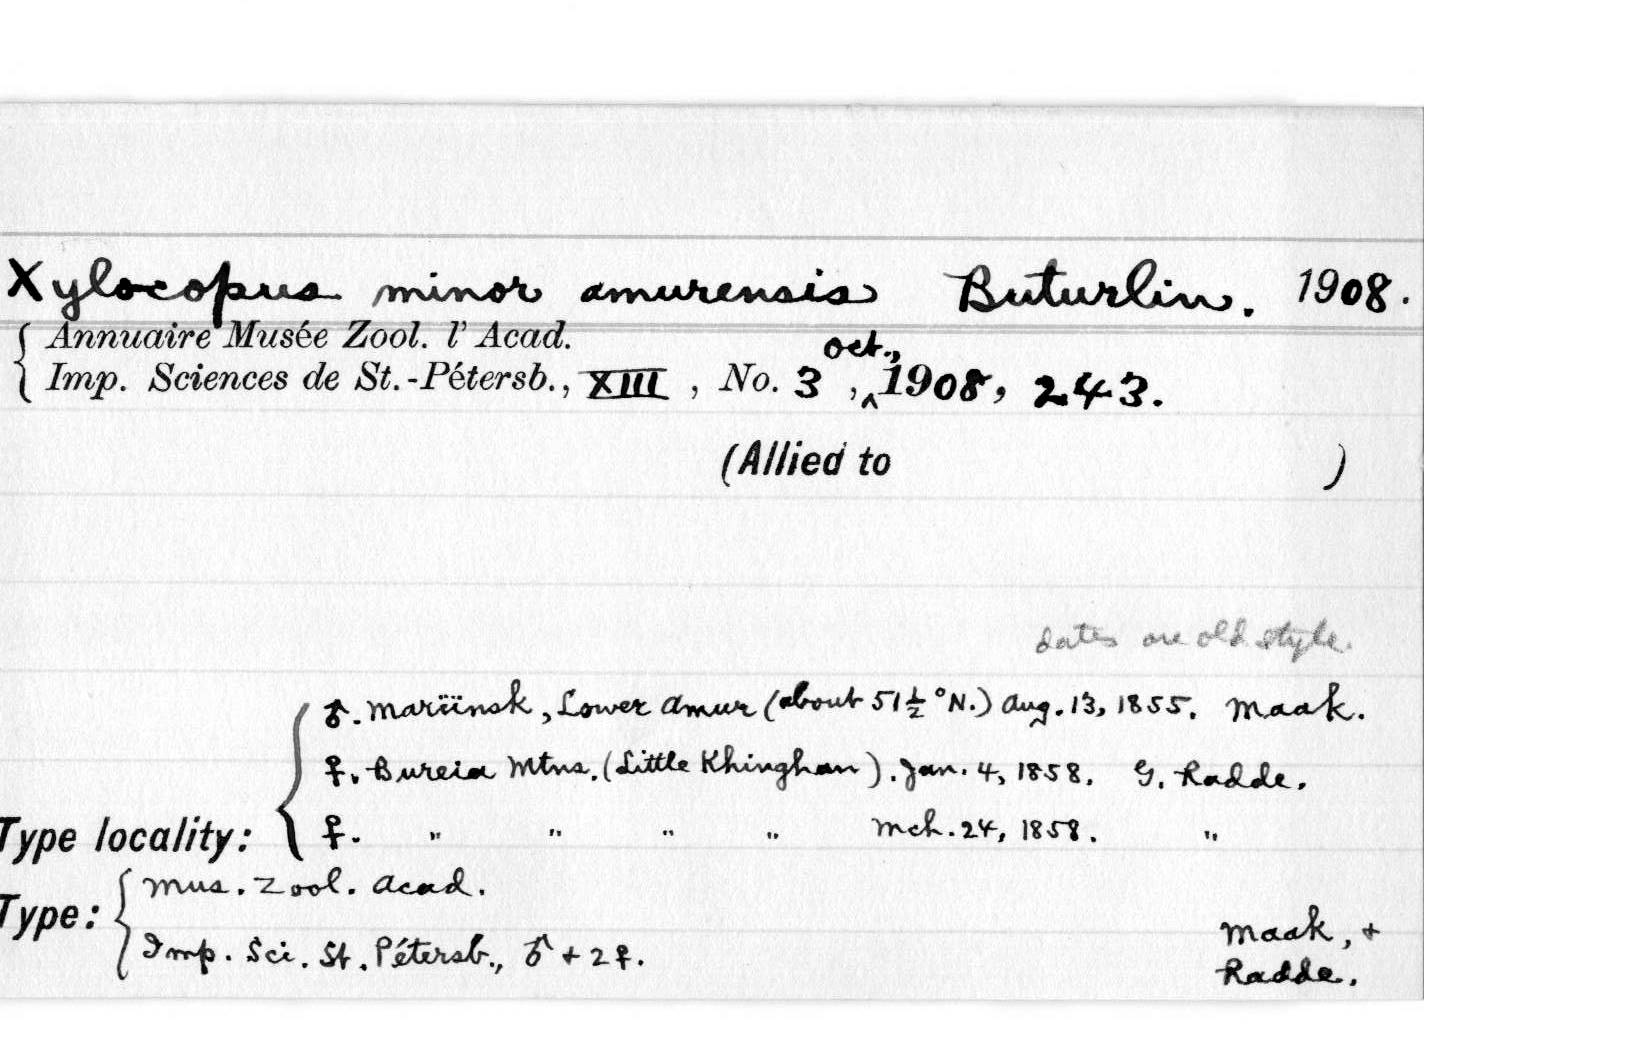 Xylocopus minor amurensis Buturlin. 1908.
{ Annuaire Musée Zool. l' Acad.
Imp. Sciences de St.-Pétersb., XIII, No. 3, Oct., 1908, 243.
(Allied to )
dates are old style.
♂. Mariinsk, Lower Amur (about 51½°N.) Aug. 13, 1855. Maak.
♀. Bureia Mtns. (Little Khinghan). Jan. 4, 1858. G. Radde.
Type locality: ♀. " " " " Mch. 24, 1858. "
Type: { Mus. Zool. Acad.
Imp. Sci. St. Pétersb., ♂ + 2♀. Maak, +
Radde.